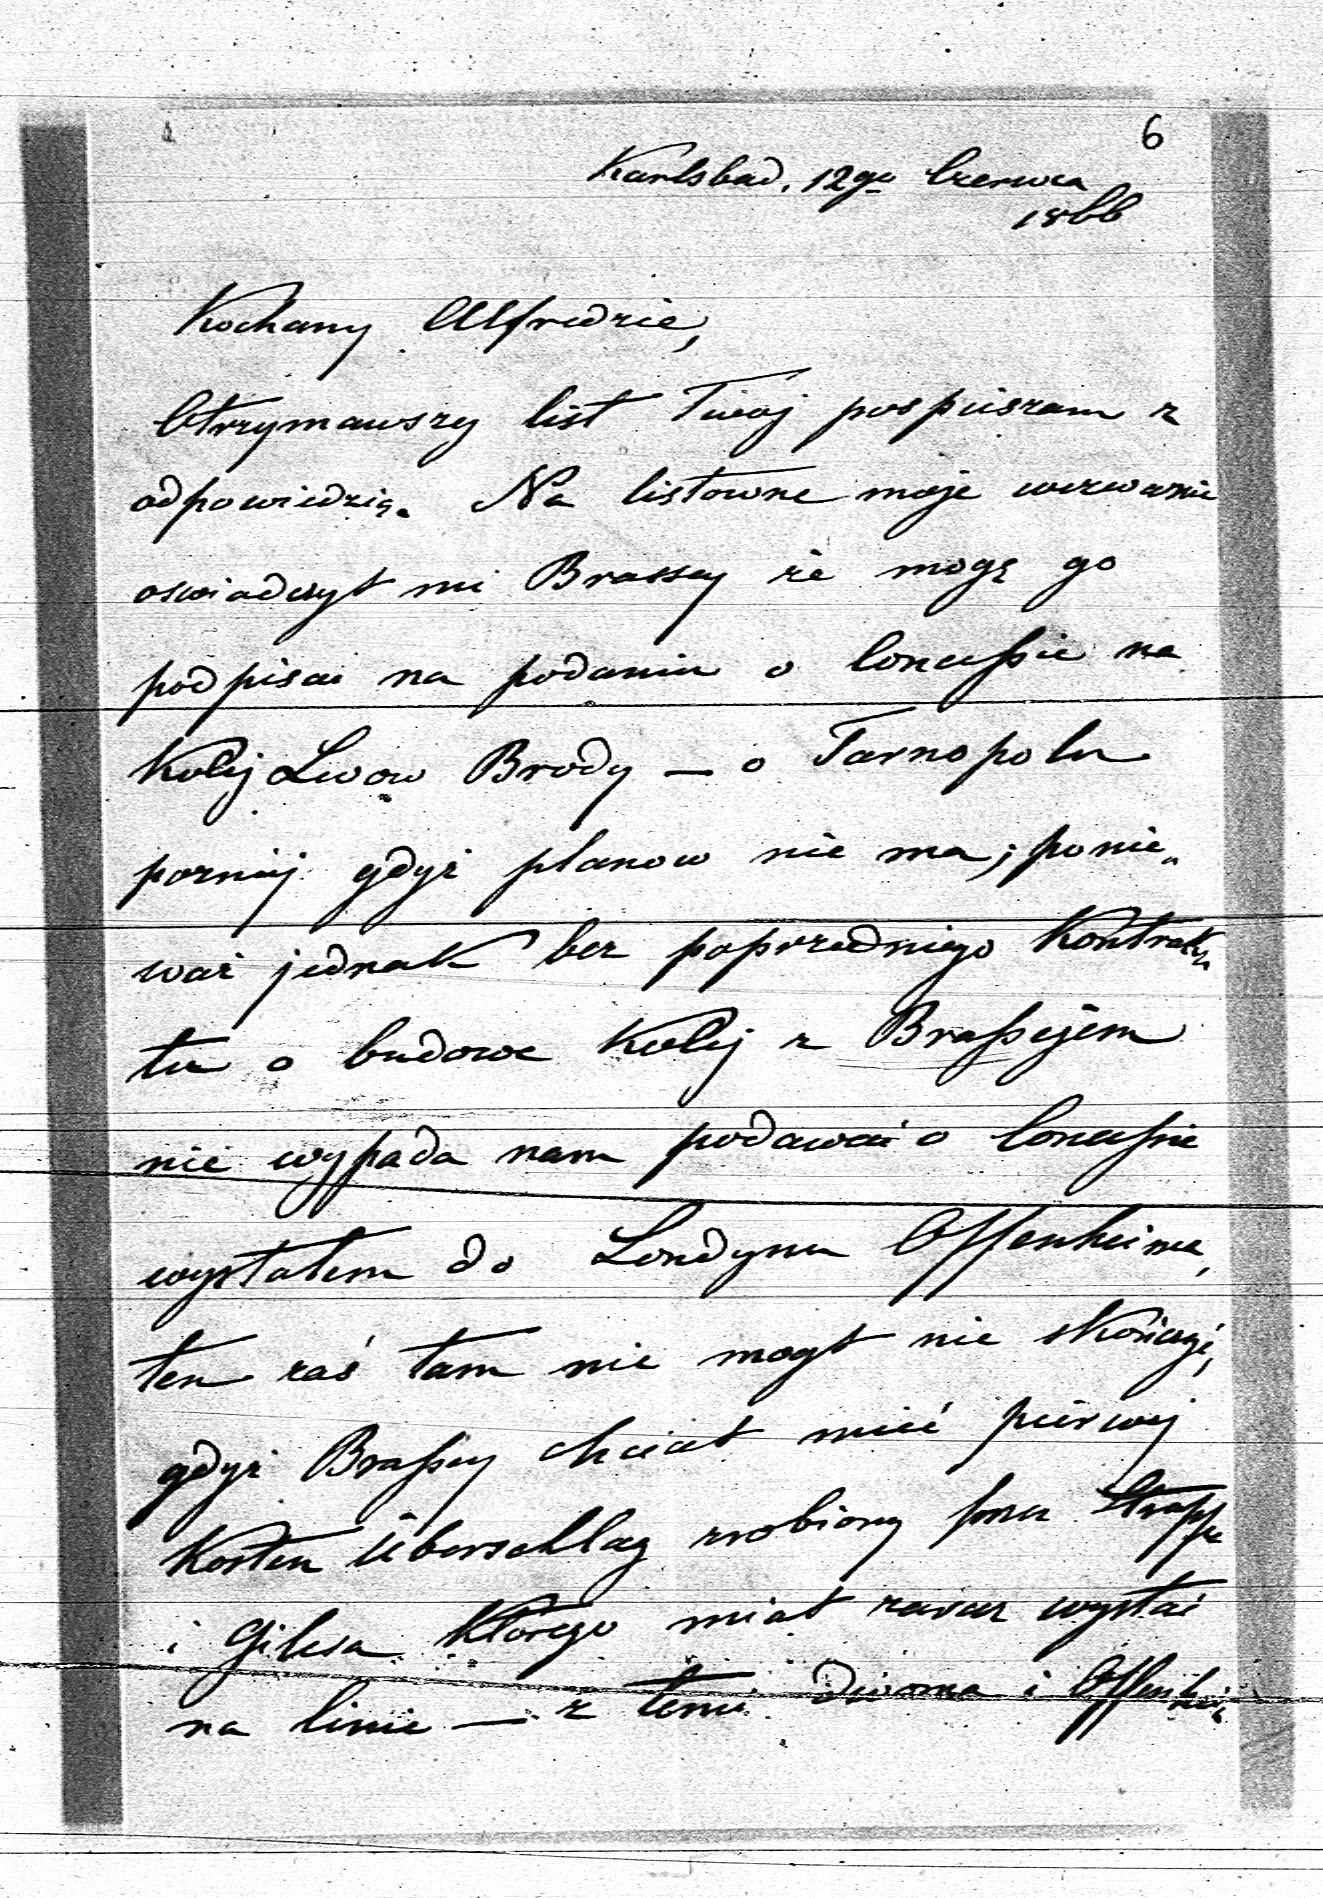 6
Karlsbad. 12go Czerwca
1866
Kochany Alfredzie,
Otrzymawszy list Twoj pospieszam z
odpowiedzią. Na listowne moje wezwanie
oswiadczył mi Brassey że mogę go
podpisać na podaniu o Concessie na
Kolej Lwow Brody — o Tarnopolu
pozniej gdyż planow nie ma; ponie„
waż jednak bez poprzedniego Kontrak„
tu o budowe Kolej z Brassejem
nie wypada nam podawać o Concessie
wysłałem do Londynu Offenheima,
ten zaś tam nie mogł nie skończyć,
gdyż Brassey chciał mieć pierwej
Kosten Überschlag zrobiony przez
i Gilesa Którego miał zaraz wysłać
na linie — z temi dwoma i Offenhei„